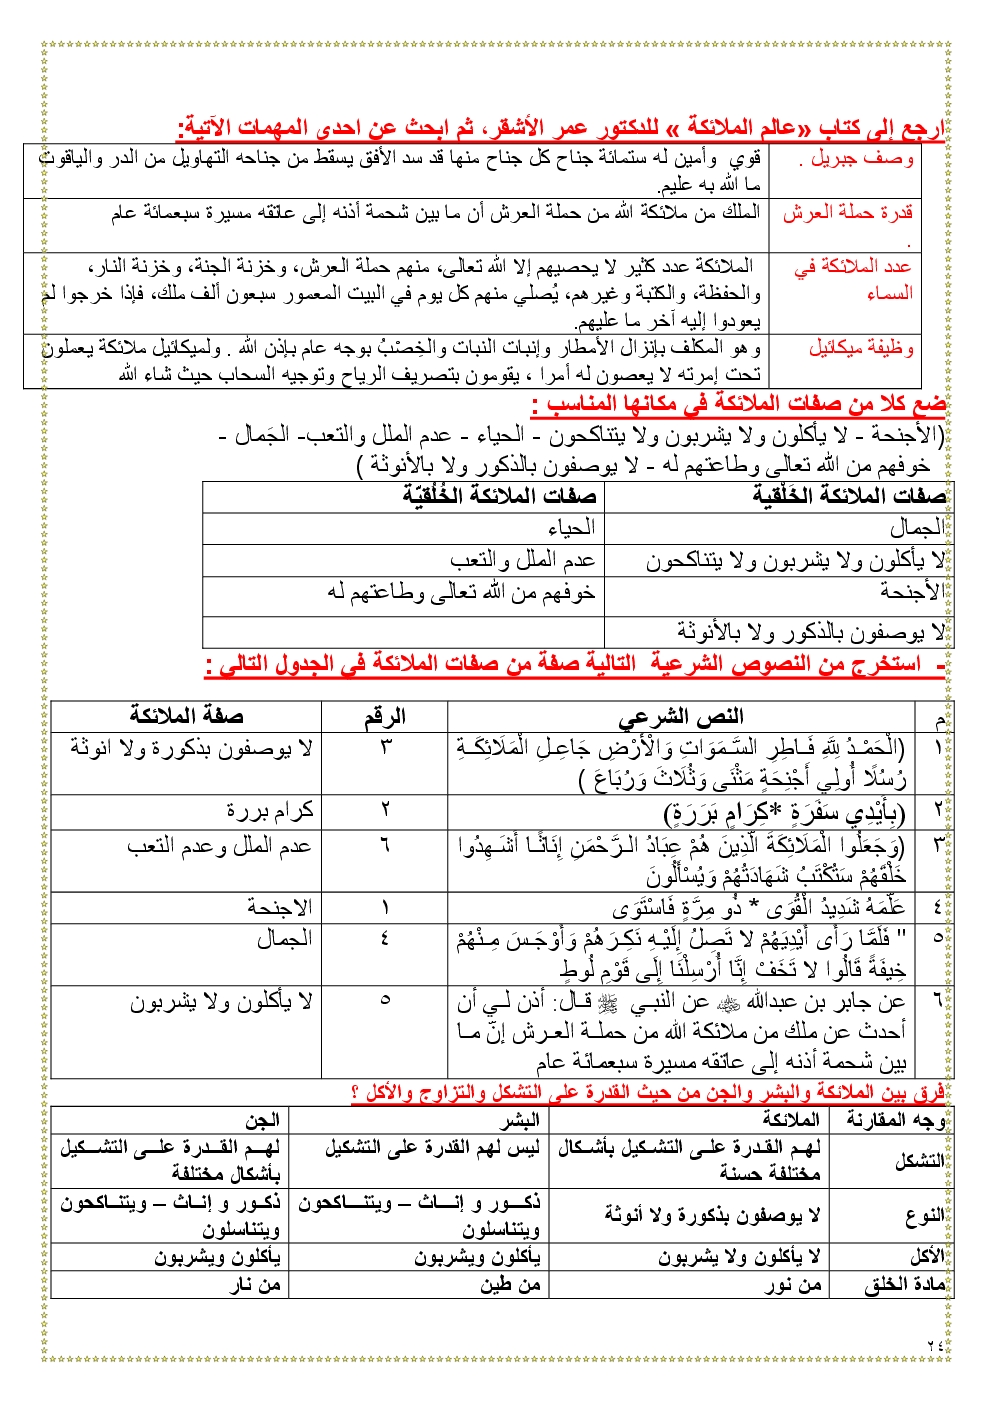 ارجع إلى كتاب «عالم الملائكة » للدكتور عمر الأشقر، ثم ابحث عن احدى المهمات الآتية:
وصف جبريل .
قوي وأمين له ستمائة جناح كل جناح منها قد سد الأفق يسقط من جناحه التهاويل من الدر والياقوت
ما الله به عليم.
قدرة حملة العرش
.
الملك من ملائكة الله من حملة العرش أن ما بين شحمة أذنه إلى عاتقه مسيرة سبعمائة عام
عدد الملائكة في
السماء
الملائكة عدد كثير لا يحصيهم إلا الله تعالى، منهم حملة العرش، وخزنة الجنة، وخزنة النار،
والحفظة، والكتبة وغيرهم، يُصلي منهم كل يوم في البيت المعمور سبعون ألف ملك، فإذا خرجوا لم
يعودوا إليه آخر ما عليهم.
وظيفة ميكائيل
وهو المكلف بإنزال الأمطار وإنبات النبات والخِصْبُ بوجه عام بإذن الله . ولميكائيل ملائكة يعملون
تحت إمرته لا يعصون له أمرا ، يقومون بتصريف الرياح وتوجيه السحاب حيث شاء الله
ضع كلا من صفات الملائكة في مكانها المناسب :
(الأجنحة - لا يأكلون ولا يشربون ولا يتناكحون - الحياء - عدم الملل والتعب- الجَمال -
خوفهم من الله تعالى وطاعتهم له - لا يوصفون بالذكور ولا بالأنوثة )
صفات الملائكة الخَلْقية
صفات الملائكة الخُلُقيّة
الجمال
الحياء
لا يأكلون ولا يشربون ولا يتناكحون
عدم الملل والتعب
الأجنحة
خوفهم من الله تعالى وطاعتهم له
لا يوصفون بالذكور ولا بالأنوثة
- استخرج من النصوص الشرعية التالية صفة من صفات الملائكة في الجدول التالي :
م
النص الشرعي
الرقم
صفة الملائكة
١
(الْحَمْدُ لِلَّهِ فَاطِرِ السَّمَوَاتِ وَالْأَرْضِ جَاعِلِ الْمَلَائِكَةِ
رُسُلًا أُولِي أَجْنِحَةٍ مَثْنَى وَثُلَاثَ وَرُبَاعَ )
٣
لا يوصفون بذكورة ولا انوثة
٢
(بِأَيْدِي سَفَرَةٍ *كِرَامٍ بَرَرَةٍ)
٢
كرام بررة
٣
(وَجَعَلُوا الْمَلَائِكَةَ الَّذِينَ هُمْ عِبَادُ الرَّحْمَنِ إِنَاثًا أَشَهِدُوا
خَلْقَهُمْ سَتُكْتَبُ شَهَادَتُهُمْ وَيُسْأَلُونَ
٦
عدم الملل وعدم التعب
٤
عَلَّمَهُ شَدِيدُ الْقُوَى * ذُو مِرَّةٍ فَاسْتَوَى
١
الاجنحة
٥
" فَلَمَّا رَأَى أَيْدِيَهُمْ لا تَصِلُ إِلَيْهِ نَكِرَهُمْ وَأَوْجَسَ مِنْهُمْ
خِيفَةً قَالُوا لا تَخَفْ إِنَّا أُرْسِلْنَا إِلَى قَوْمِ لُوطٍ
٤
الجمال
٦
عن جابر بن عبدالله عن النبي ﷺ قال: أذن لي أن
أحدث عن ملك من ملائكة الله من حملة العرش إنّ ما
بين شحمة أذنه إلى عاتقه مسيرة سبعمائة عام
٥
لا يأكلون ولا يشربون
فرق بين الملائكة والبشر والجن من حيث القدرة على التشكل والتزاوج والأكل ؟
وجه المقارنة
الملائكة
البشر
الجن
التشكل
لهم القدرة على التشكيل بأشكال
مختلفة حسنة
ليس لهم القدرة على التشكيل
لهم القدرة على التشكيل
بأشكال مختلفة
النوع
لا يوصفون بذكورة ولا أنوثة
ذكور و إناث – ويتناكحون
ويتناسلون
ذكور و إناث – ويتناكحون
ويتناسلون
الأكل
لا يأكلون ولا يشربون
يأكلون ويشربون
يأكلون ويشربون
مادة الخلق
من نور
من طين
من نار
٢٤